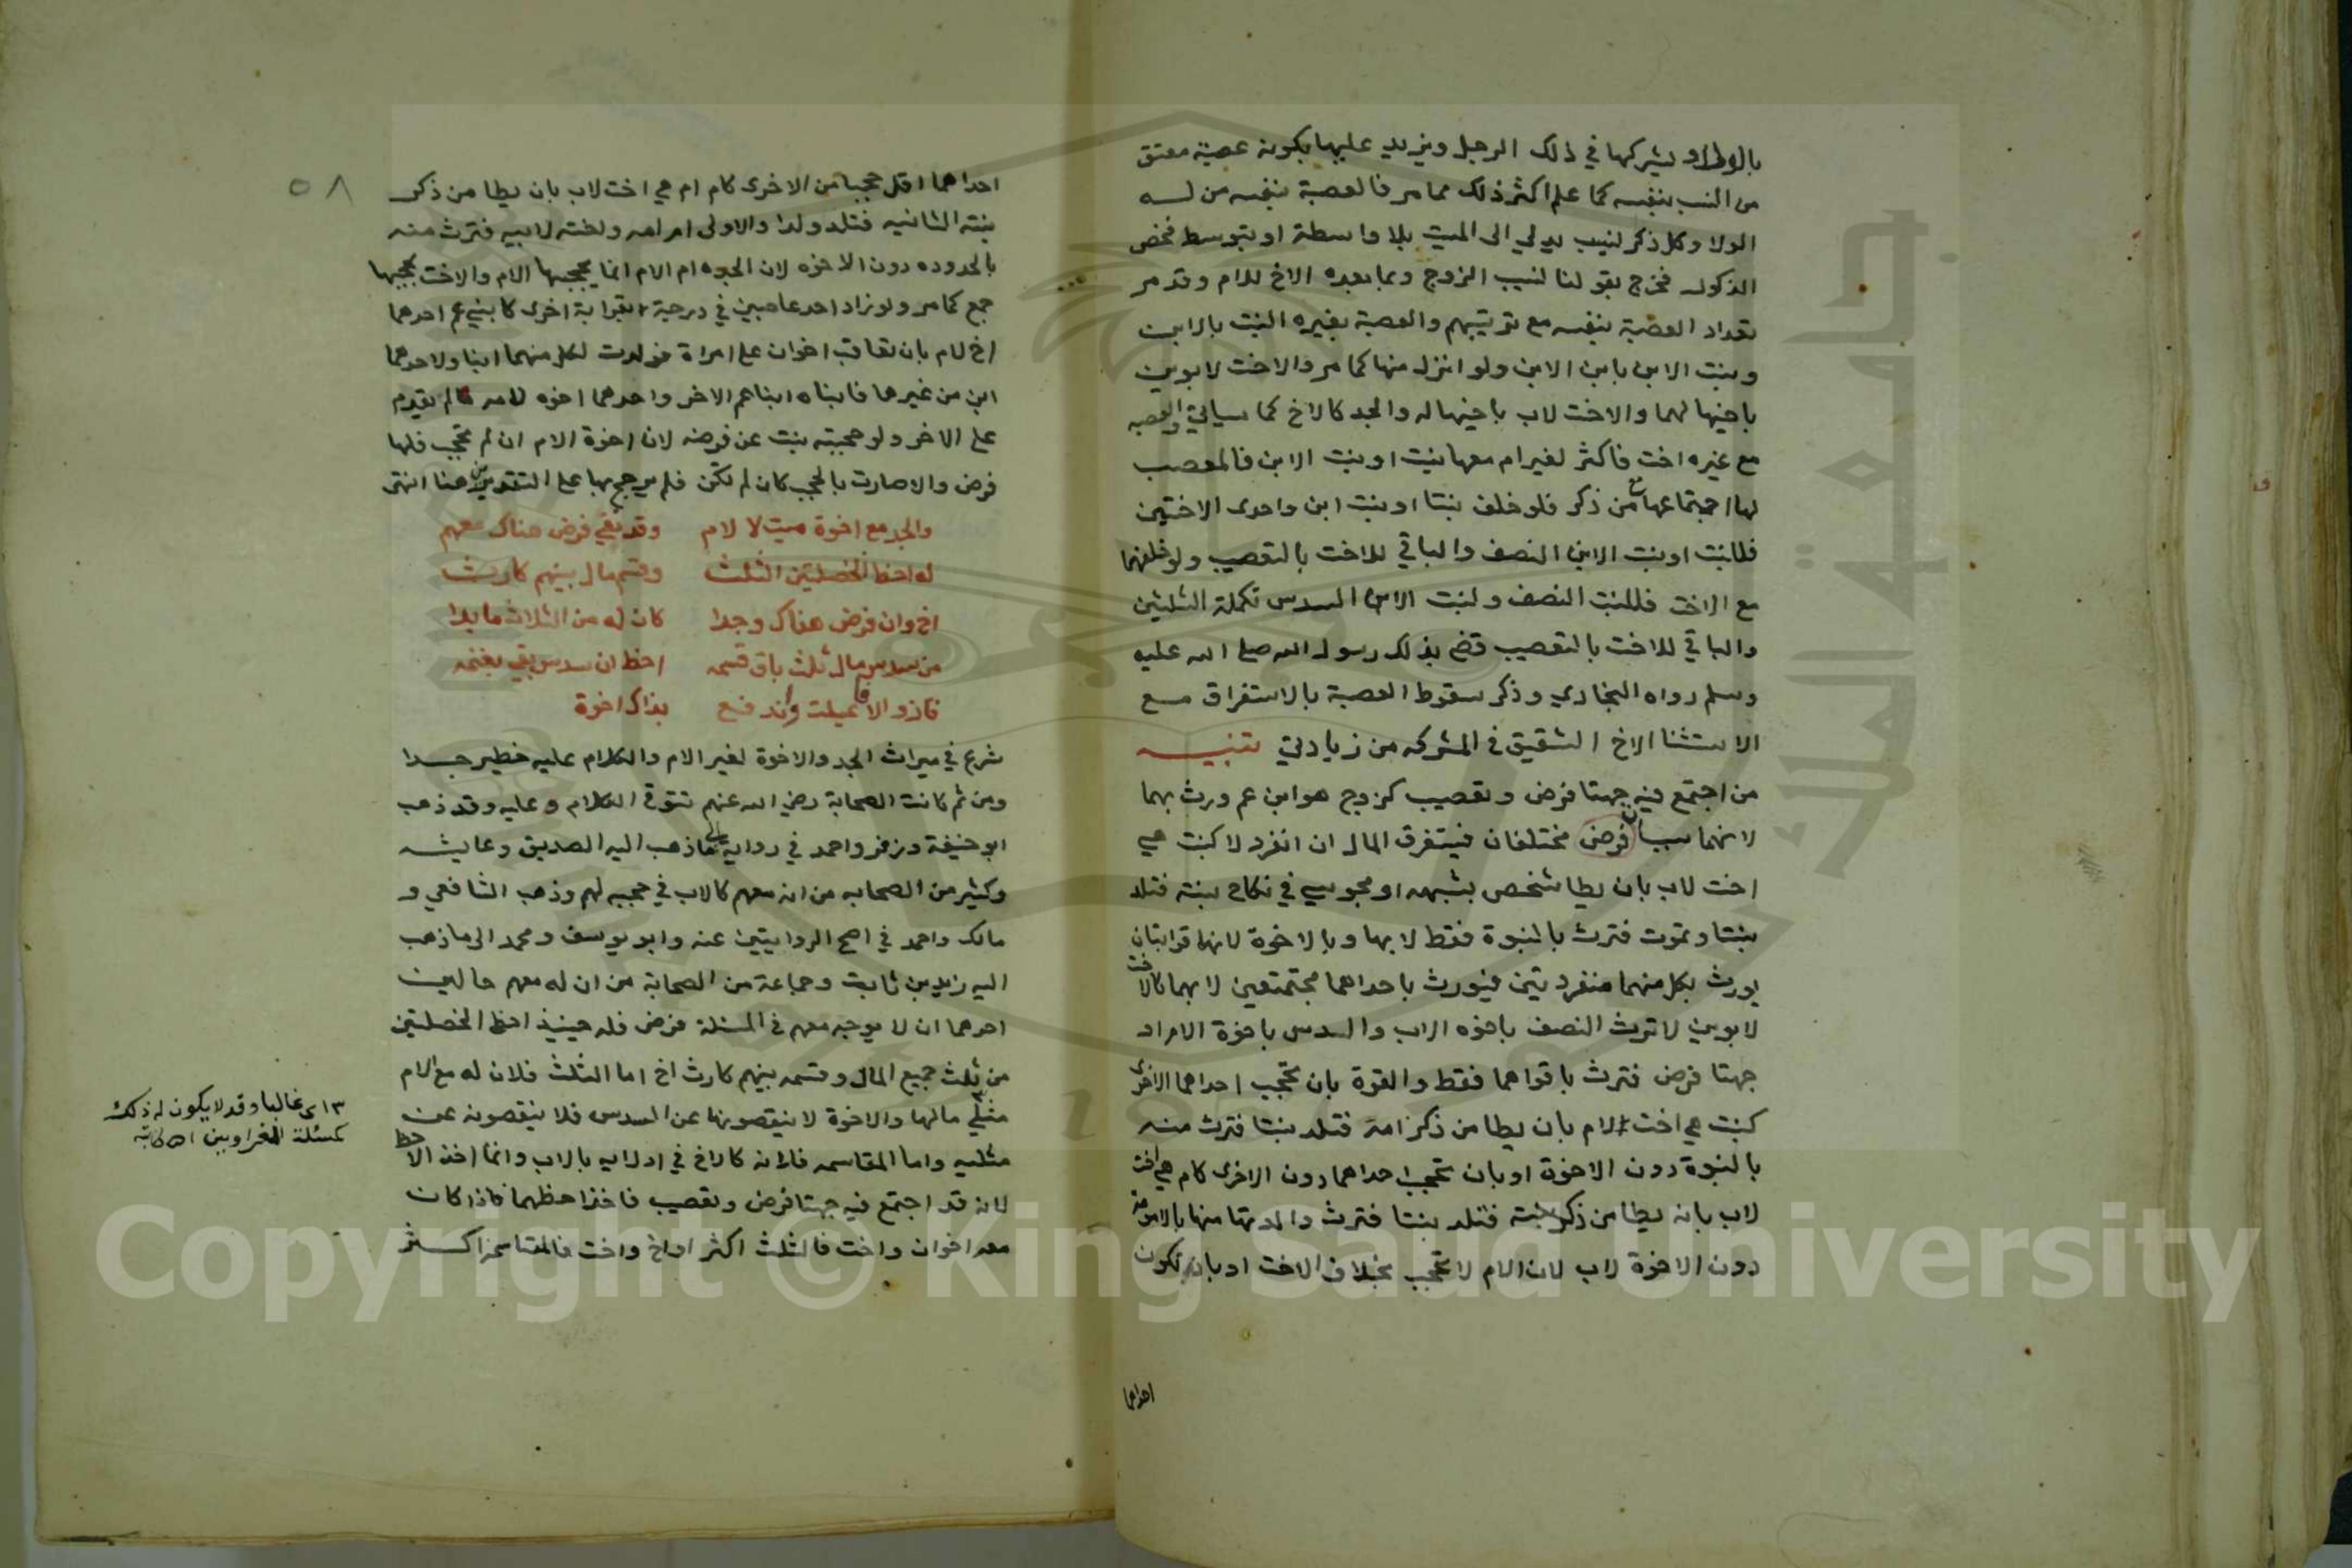 بالولاء ويشركها في ذلك الرجل ويزيد عليها بكونه عصبة معتق
من النسب بنفسه كما علم اكثر ذلك مما مر فالعصبة بنفسه من له
الولا وكل ذكر نسيب يدلي الى الميت بلا واسطة او بتوسط محض
الذكور فخرج بقولنا نسيب الزوج وبما بعده الاخ للام وقد مر
تعداد العصبة بنفسه مع ترتيبهم والعصبة بغيره البنت بالابن
وبنت الابن بابن الابن ولو انزل منها كما مر والاخت لابوين
باخيها لهما والاخت لاب باخيها له والجد كالاخ كما سياتي والعصبه
مع غيره اخت فاكثر لغير ام معها بنت او بنت الابن فالمعصب
لها اجتماعها مع من ذكر فلو خلف بنتا او بنت ابن واحدى الاختين
فللبنت او بنت الابن النصف والباقي للاخت بالتعصيب ولو خلفهما
مع الاخت فللبنت النصف ولبنت الابن السدس تكملة الثلثين
والباقي للاخت بالتعصيب قضى بذلك رسول الله صلى الله عليه
وسلم رواه البخاري وذكر سقوط العصبة بالاستغراق مع
الاستثنا الاخ الشقيق في المشركه من زيادتي تنبيه
من اجتمع فيه جهتا فرض وتعصيب كزوج هو ابن عم ورث بهما
لانهما سببان فرض مختلفان فيستغرق المال ان انفرد لا كبنت هي
اخت لاب بان يطا شخص بشبهه او مجوسي في نكاح بنته فتلد
بنتا وتموت فترث بالبنوة فقط لا بها وبالاخوة لانهما قرابتان
يورث بكل منهما منفردتين فيورث باحداهما مجتمعتين لا بهما كالاخت
لابوين لا ترث النصف باخوه الاب والسدس باخوة الام او
جهتا فرض فترث باقواهما فقط والقوة بان تحجب احداهما الاخرى
كبنت هي اخت لام بان يطا من ذكر امه فتلد بنتا فترث منه
بالبنوة دون الاخوة او بان تحجب احداهما دون الاخرى كام هي اخت
لاب بان يطا من ذكر بنته فتلد بنتا فترث والدتها منها بالامومة
دون الاخوة لاب لان الام لا تحجب بخلاف الاخت او بان تكون
احداهما
٥٨
احداهما اقل حجبا من الاخرى كام ام هي اخت لاب بان يطا من ذكر
بنته الثانيه فتلد ولدا والاولى ام امه واخته لابيه فترث منه
بالجدوده دون الاخوه لان الجده ام الام انما يحجبها الام والاخت يحجبها
جمع كما مر ولو زاد احد عاصبين في درجة بقرابة اخرى كابني عم احدهما
اخ لام بان تعاقب اخوان على امراة فولدت لكل منهما ابنا ولاحدهما
ابن من غيرها فابناه ابنا عم الاخر واحدهما اخوه لامه لم يقدم
على الاخر ولو حجبته بنت عن فرضه لان اخوة الام ان لم تحجب فلها
فرض والا صارت بالحجب كان لم تكن فلم يرجح بها على التقديرين هنا انتهى
والجد مع اخوة ميت لا لام وقد بقي فرض هناك معهم
له احظ الخصلتين الثلث وقسم مال بينهم كارث
اخ وان فرض هناك وجدا كان له من الثلاث ما بدا
من سدس مال ثلث باق قسمه احظ ان سدس بقي يغنمه
فاز والا عيلت واندفع بذاك اخوة
شرع في ميراث الجد والاخوة لغير الام والكلام عليه خطير جدا
ومن ثم كانت الصحابة رضي الله عنهم تتوقى الكلام وعليه وقد ذهب
ابو حنيفة وزفر واحمد في رواية الى ما ذهب اليه الصديق وعايشه
وكثير من الصحابه من انه معهم كالاب في حجبه لهم وذهب الشافعي و
مالك واحمد في اصح الروايتين عنه وابو يوسف ومحمد الى ما ذهب
اليه زيد بن ثابت وجماعة من الصحابة من ان له معهم حالين
احدهما ان لا يوجد معهم في المسئلة فرض فله حينيذ احظ الخصلتين
من ثلث جميع المال وقسمه بينهم كارث اخ اما الثلث فلان له مع الام
مثلي مالها والاخوة لا ينقصونها عن السدس فلا ينقصونه عن
مثليه واما المقاسمه فلانه كالاخ في ادلايه بالاب وانما اخذ الاحظ
لانه قد اجتمع فيه جهتا فرض وتعصيب فاخذ احظهما فاذا كان
معه اخوان واخت فالثلث اكثر او اخ واخت فالمقاسمة اكثر
اي غالبا وقد لا يكون له ذلك
كمسئلة الغراوين اهـ
Copyright © King Saud University